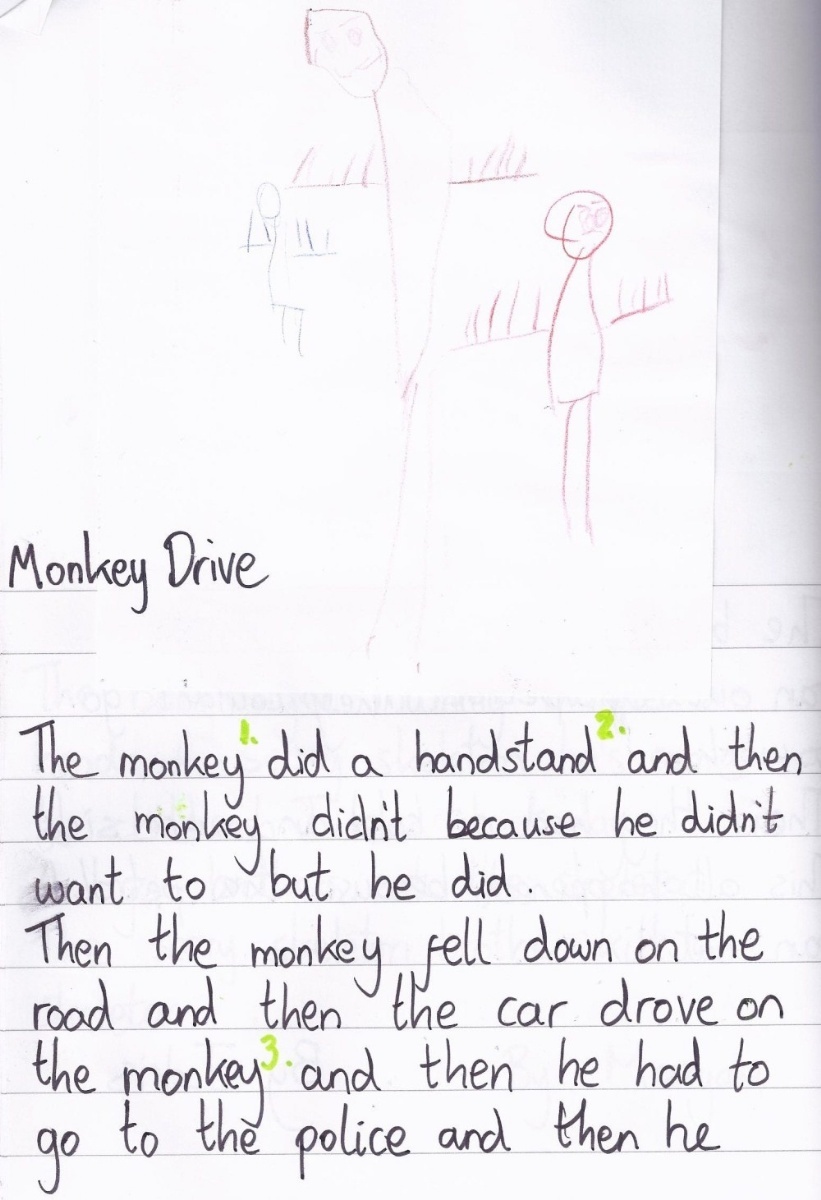 Monkey Drive
The monkey 1. did a handstand 2. and then
the monkey didn't because he didn't
want to but he did.
Then the monkey fell down on the
road and then the car drove on
the monkey 3. and then he had to
go to the police and then he